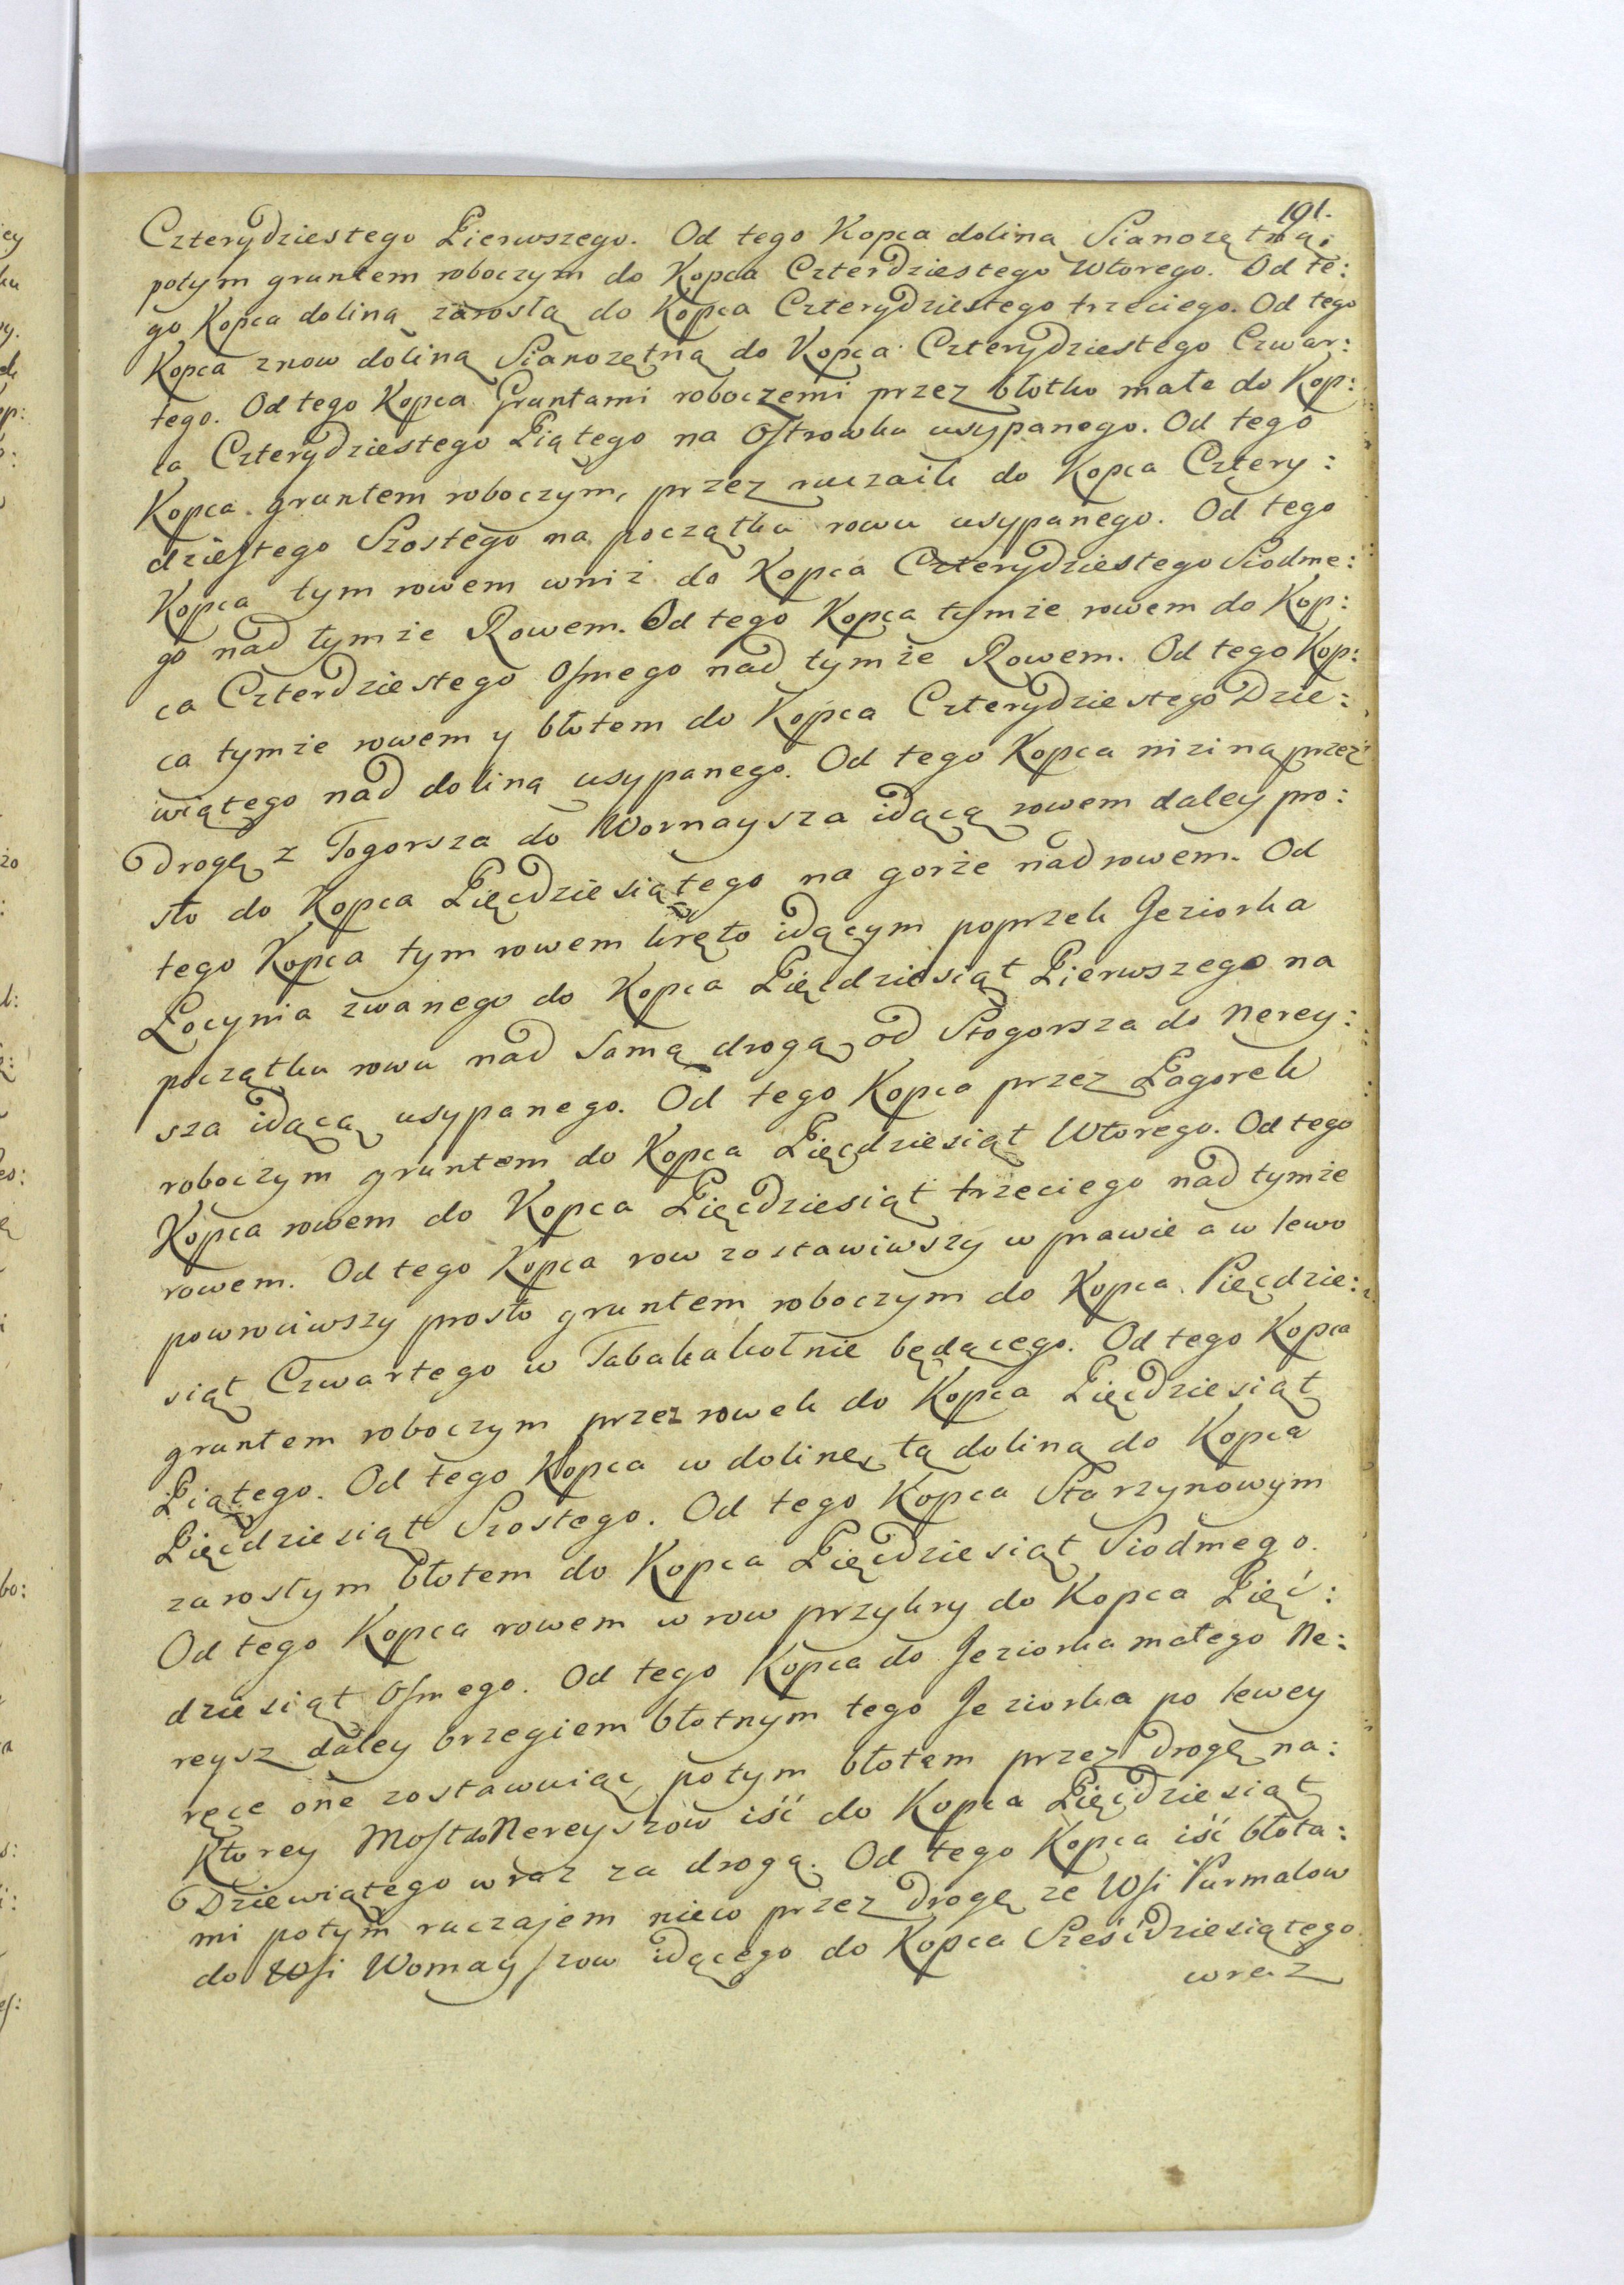 191.
Czterydziestego Pierwszego. Od tego Kopca doliną Sianozętną,
potym gruntem roboczym do Kopca Czterdziestego Wtorego. Od te:
go Kopca doliną zarosłą do Kopca Czterydziestego trzeciego. Od tego
Kopca znow doliną Sianozętną do Kopca Czterydziestego Czwar:
tego. Od tego Kopca Gruntami roboczemi przez błotko małe do Kop:
ca Czterydziestego Piątego na Ostrowku usypanego. Od tego
Kopca gruntem roboczym, przez ruczaik do Kopca Cztery:
dziestego Szostego na początku rowu usypanego. Od tego
Kopca tym rowem wniż do Kopca Czterydziestego Siodme:
go nad tymże Rowem. Od tego Kopca tymże rowem do Kop:
ca Czterdziestego Osmego nad tymże Rowem. Od tego Kop:
ca tymże rowem y błotem do Kopca Czterydziestego Dzie:
wiątego nad doliną usypanego. Od tego Kopca niziną przez
Drogę z Togorsza do Wornaysza idącą rowem daley pro:
sto do Kopca Pięcdziesiątego na gorze nad rowem. Od
tego Kopca tym rowem kręto idącym poprzek Jeziorka
Łocynia zwanego do Kopca Pięcdziesiąt Pierwszego na
początku rowu nad Samą drogą od Stogorsza do Nerey:
sza idącą usypanego. Od tego Kopca przez Pagorek
roboczym gruntem do Kopca Pięcdziesiąt Wtorego. Od tego
Kopca rowem do Kopca Pięcdziesiąt trzeciego nad tymże
rowem. Od tego Kopca row zostawiwszy w prawie a w lewo
powrociwszy prosto gruntem roboczym do Kopca Pięcdzie:
siąt Czwartego w Tabakakotnie będącego. Od tego Kopca
gruntem roboczym przez rowek do Kopca Pięcdziesiąt
Piątego. Od tego Kopca w dolinę, tą doliną do Kopca
Pięcdziesiąt Szostego. Od tego Kopca Starzynowym
zarosłym błotem do Kopca Pięcdziesiąt Siodmego.
Od tego Kopca rowem w row przykry do Kopca Pięć:
dziesiąt Osmego. Od tego Kopca do Jeziorka małego Ne:
reysz daley brzegiem błotnym tego Jeziorka po lewey
ręce one zostawuiąc, potym błotem przez Drogę na:
Ktorey Most do Nereyszow iść do Kopca Pięcdziesiąt
Dziewiątego wraz za drogą. Od tego Kopca iść błota:
mi potym ruczajem nieco przez Drogę ze Wsi Purmalow
do Wsi Womayszow idącego do Kopca Sześćdziesiątego
wraz